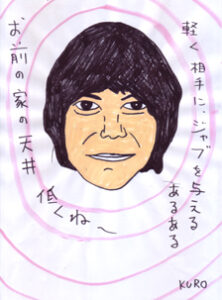 軽く相手にジャブを与える
あるある
お前の家の天井
低くね〜
KURO